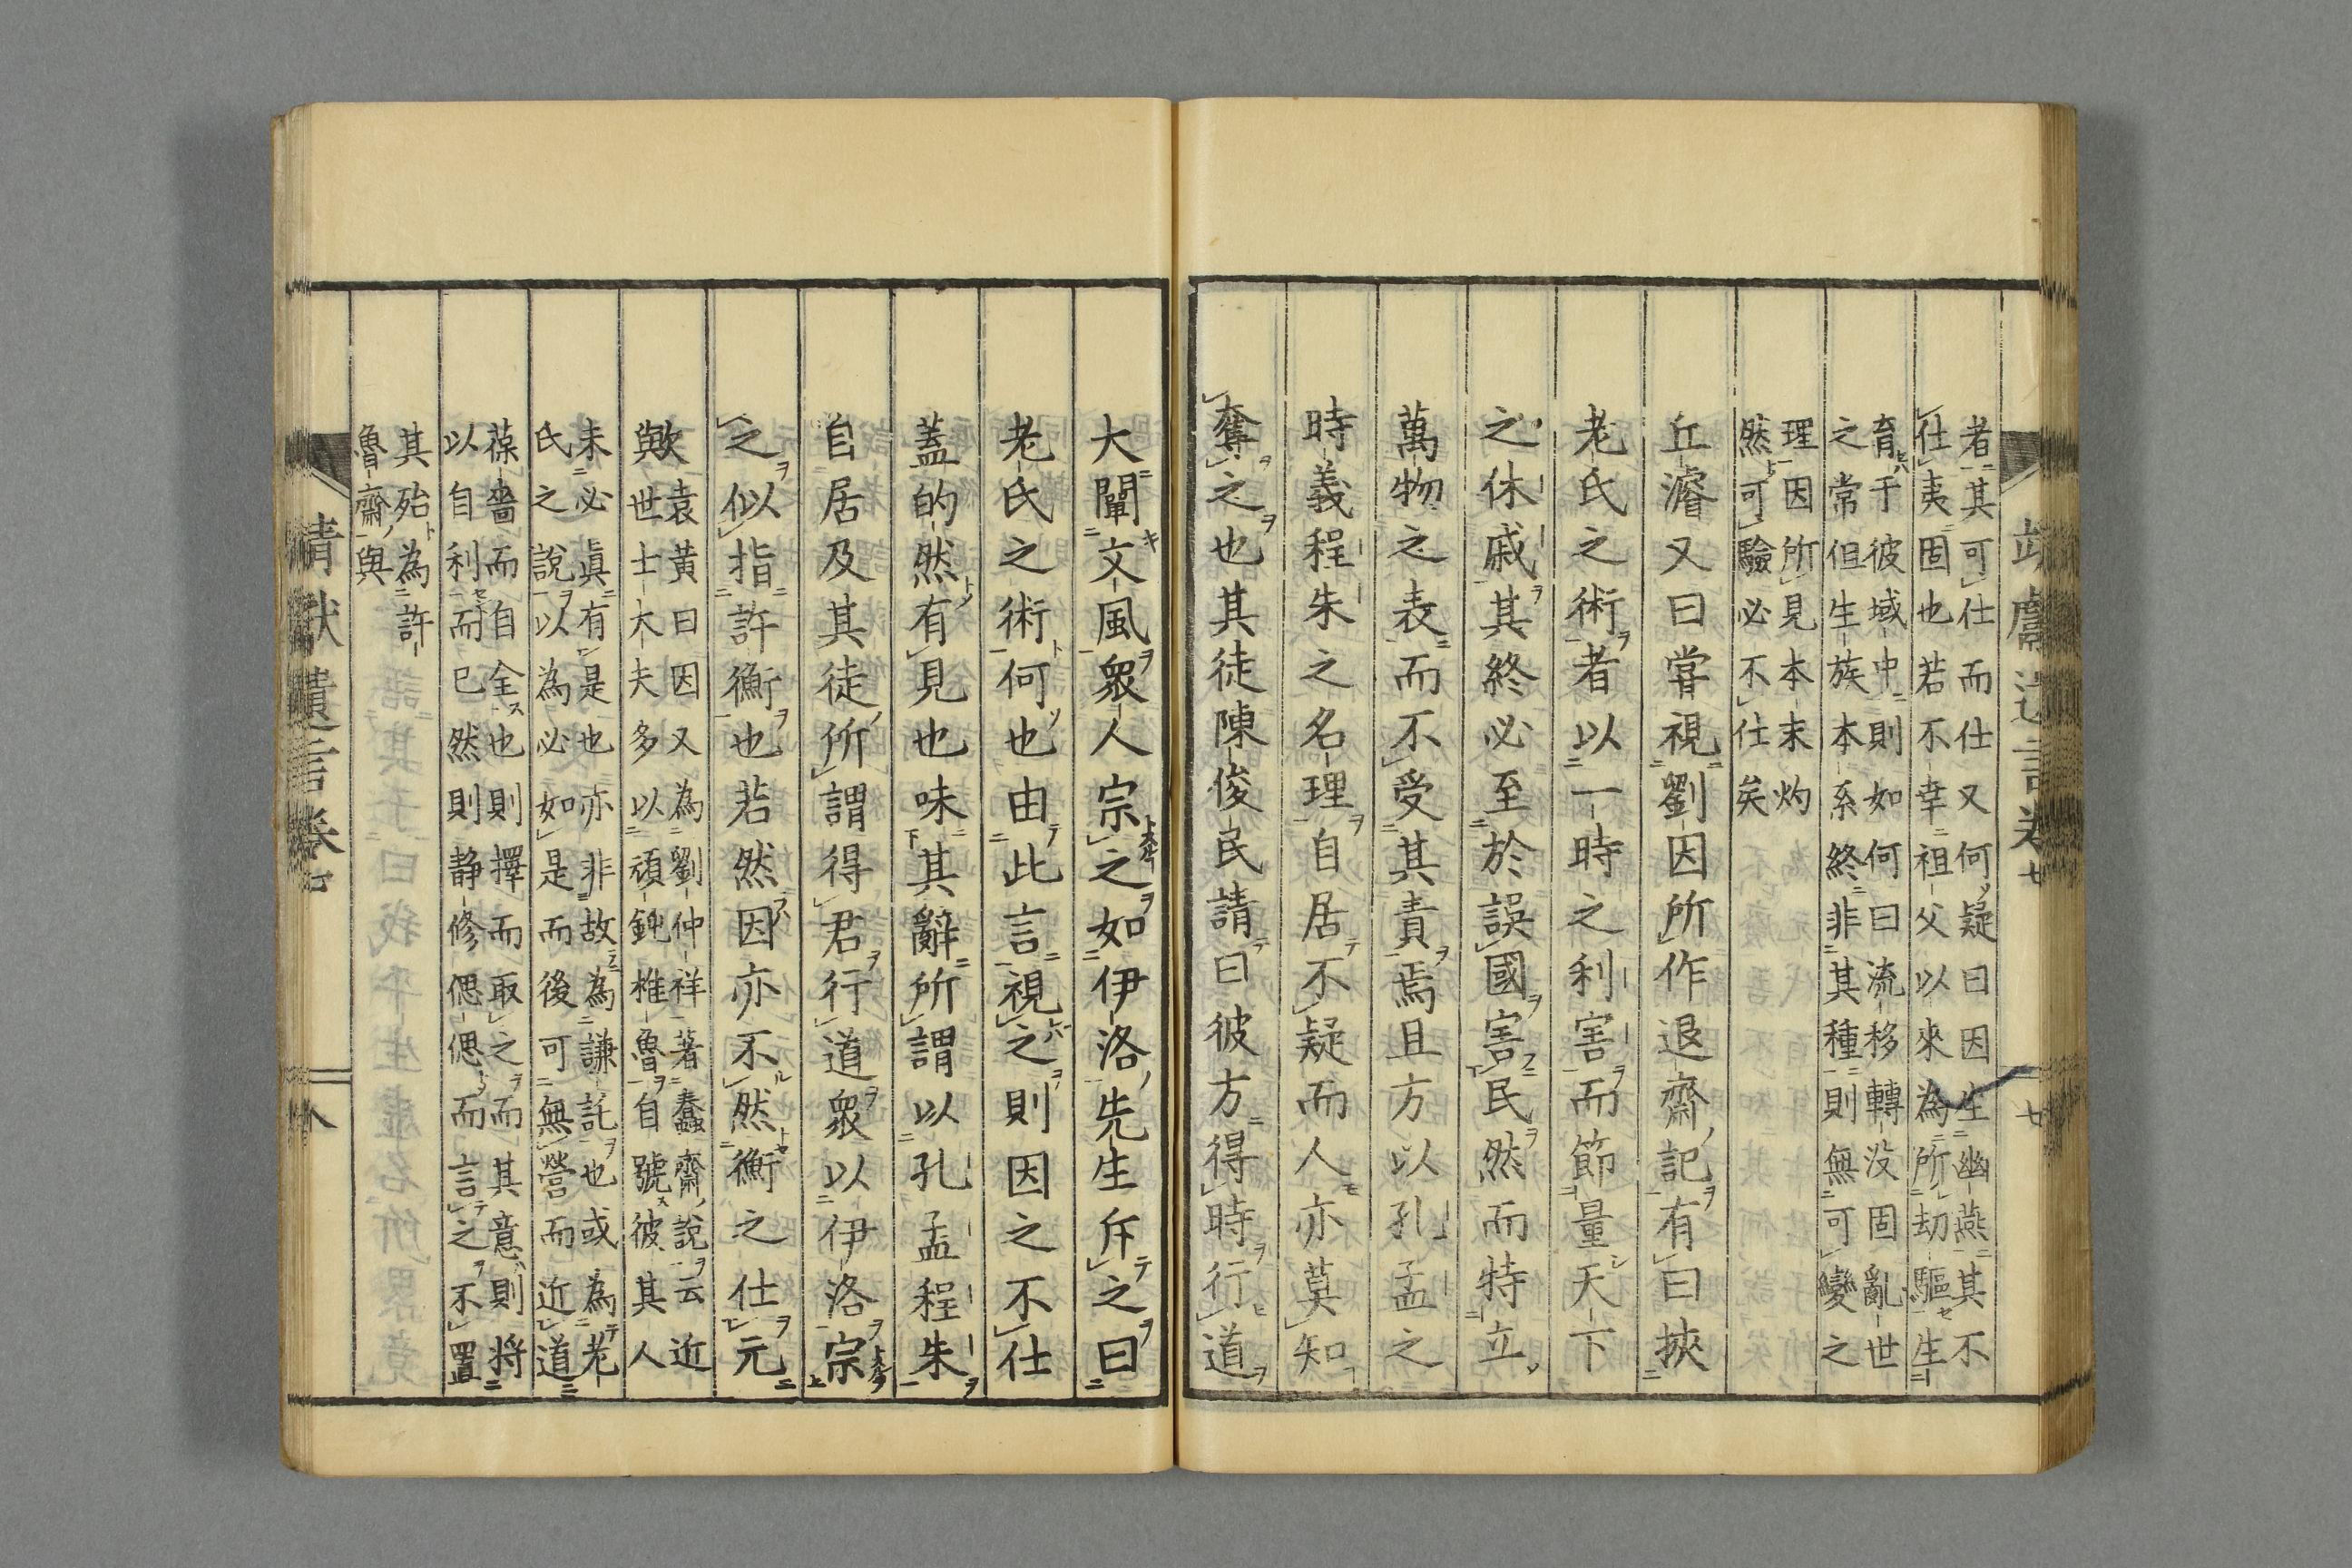 者其可仕而仕又何疑曰因生幽燕其不
仕夷固也若不幸祖父以來為所劫驅生
育于彼域中則如何曰流移轉没固亂世
之常但生族本系終非其種則無可變之
理因所見本末灼
然可驗必不仕矣
丘濬又曰甞視劉因所作退齋記有曰挾
老氏之術者以一時之利害而節量天下
之休戚其終必至於誤國害民然而特立
萬物之表而不受其責焉且方以孔孟之
時義程朱之名理自居不疑而人亦莫知
奪之也其徒陳俊民請曰彼方得時行道
大闡文風衆人宗之如伊洛先生斥之曰
老氏之術何也由此言視之則因之不仕
蓋的然有見也味其辭所謂以孔孟程朱
自居及其徒所謂得君行道衆以伊洛宗
之似指許衡也若然因亦不然衡之仕元
歟袁黄曰因又為劉仲祥著蠢齋說云近
世士大夫多以頑鈍椎魯自號彼其人
未必眞有是也亦非故為謙託也或為老
氏之說以為必如是而後可無營而近道
葆嗇而自全也則擇而取之而其意則將
以自利而已然則静修偲偲而言之不置
其殆為許
魯齋與
靖獻遺言卷七
八